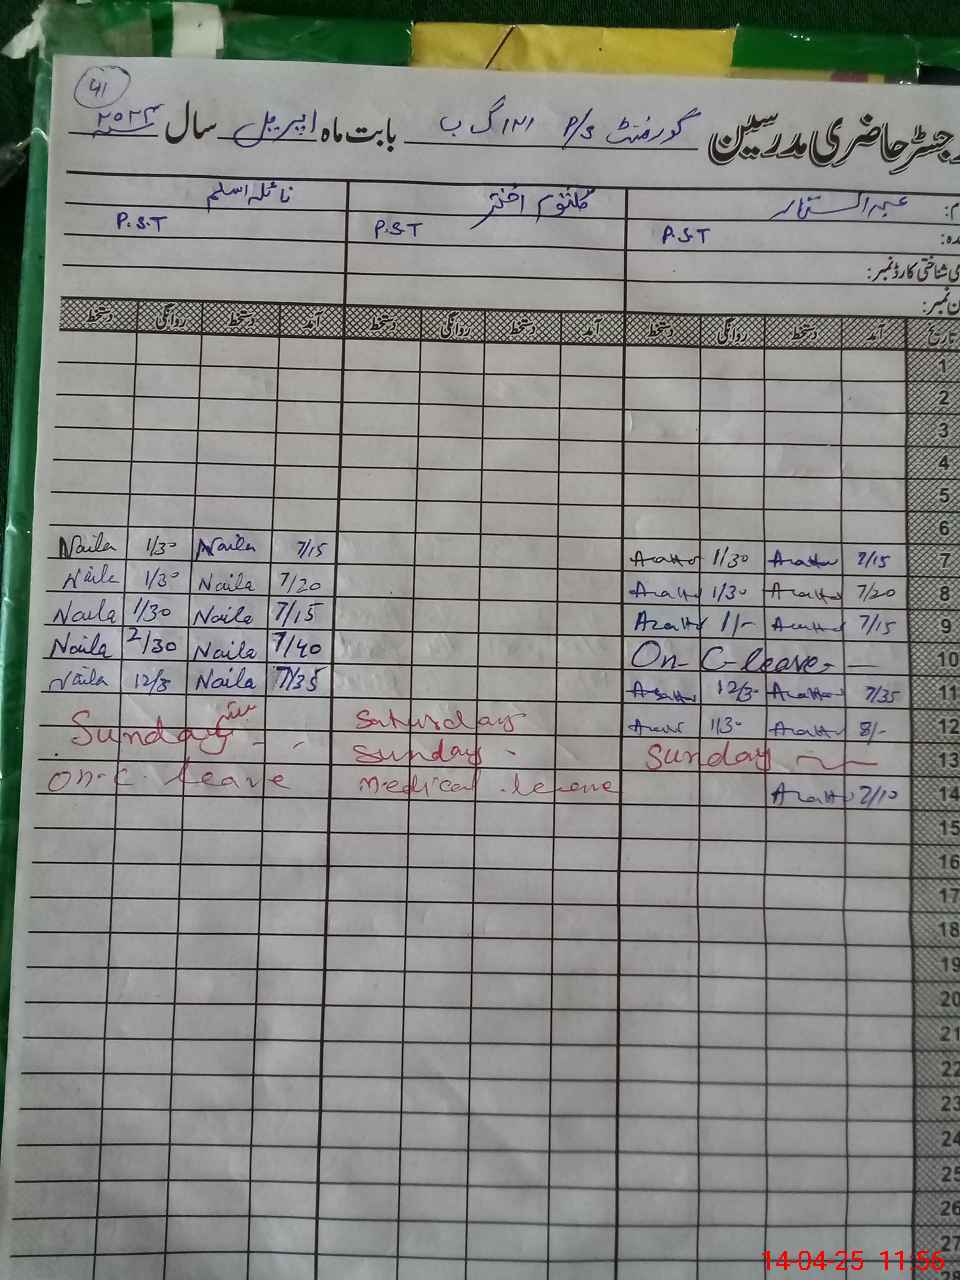 41
رجسٹر حاضری مدرسین گورنمنٹ P/S ۱۲۱ گ ب بابت ماہ اپریل سال
عبدالستار کلثوم اختر نائلہ اسلم
P.S.T P.S.T P.S.T
شناختی کارڈ نمبر:
نمبر:
تاریخ آمد دستخط روانگی دستخط آمد دستخط روانگی دستخط آمد دستخط روانگی دستخط
1
2
3
4
5
6
Naila 1/30 Naila 7/15 1/30 7/15 7
Naila 1/30 Naila 7/20 1/30 7/20 8
Naila 1/30 Naila 7/15 1/- 7/15 9
Naila 2/30 Naila 7/40 On- C-leave- 10
Naila 12/3 Naila 7/35 12/3 7/35 11
Sunday Saturday 1/30 8/- 12
Sunday - Sunday 13
on-C leave medical leave 7/10 14
15
16
17
18
19
20
21
22
23
24
25
26
27
28
14-04-25 11:56